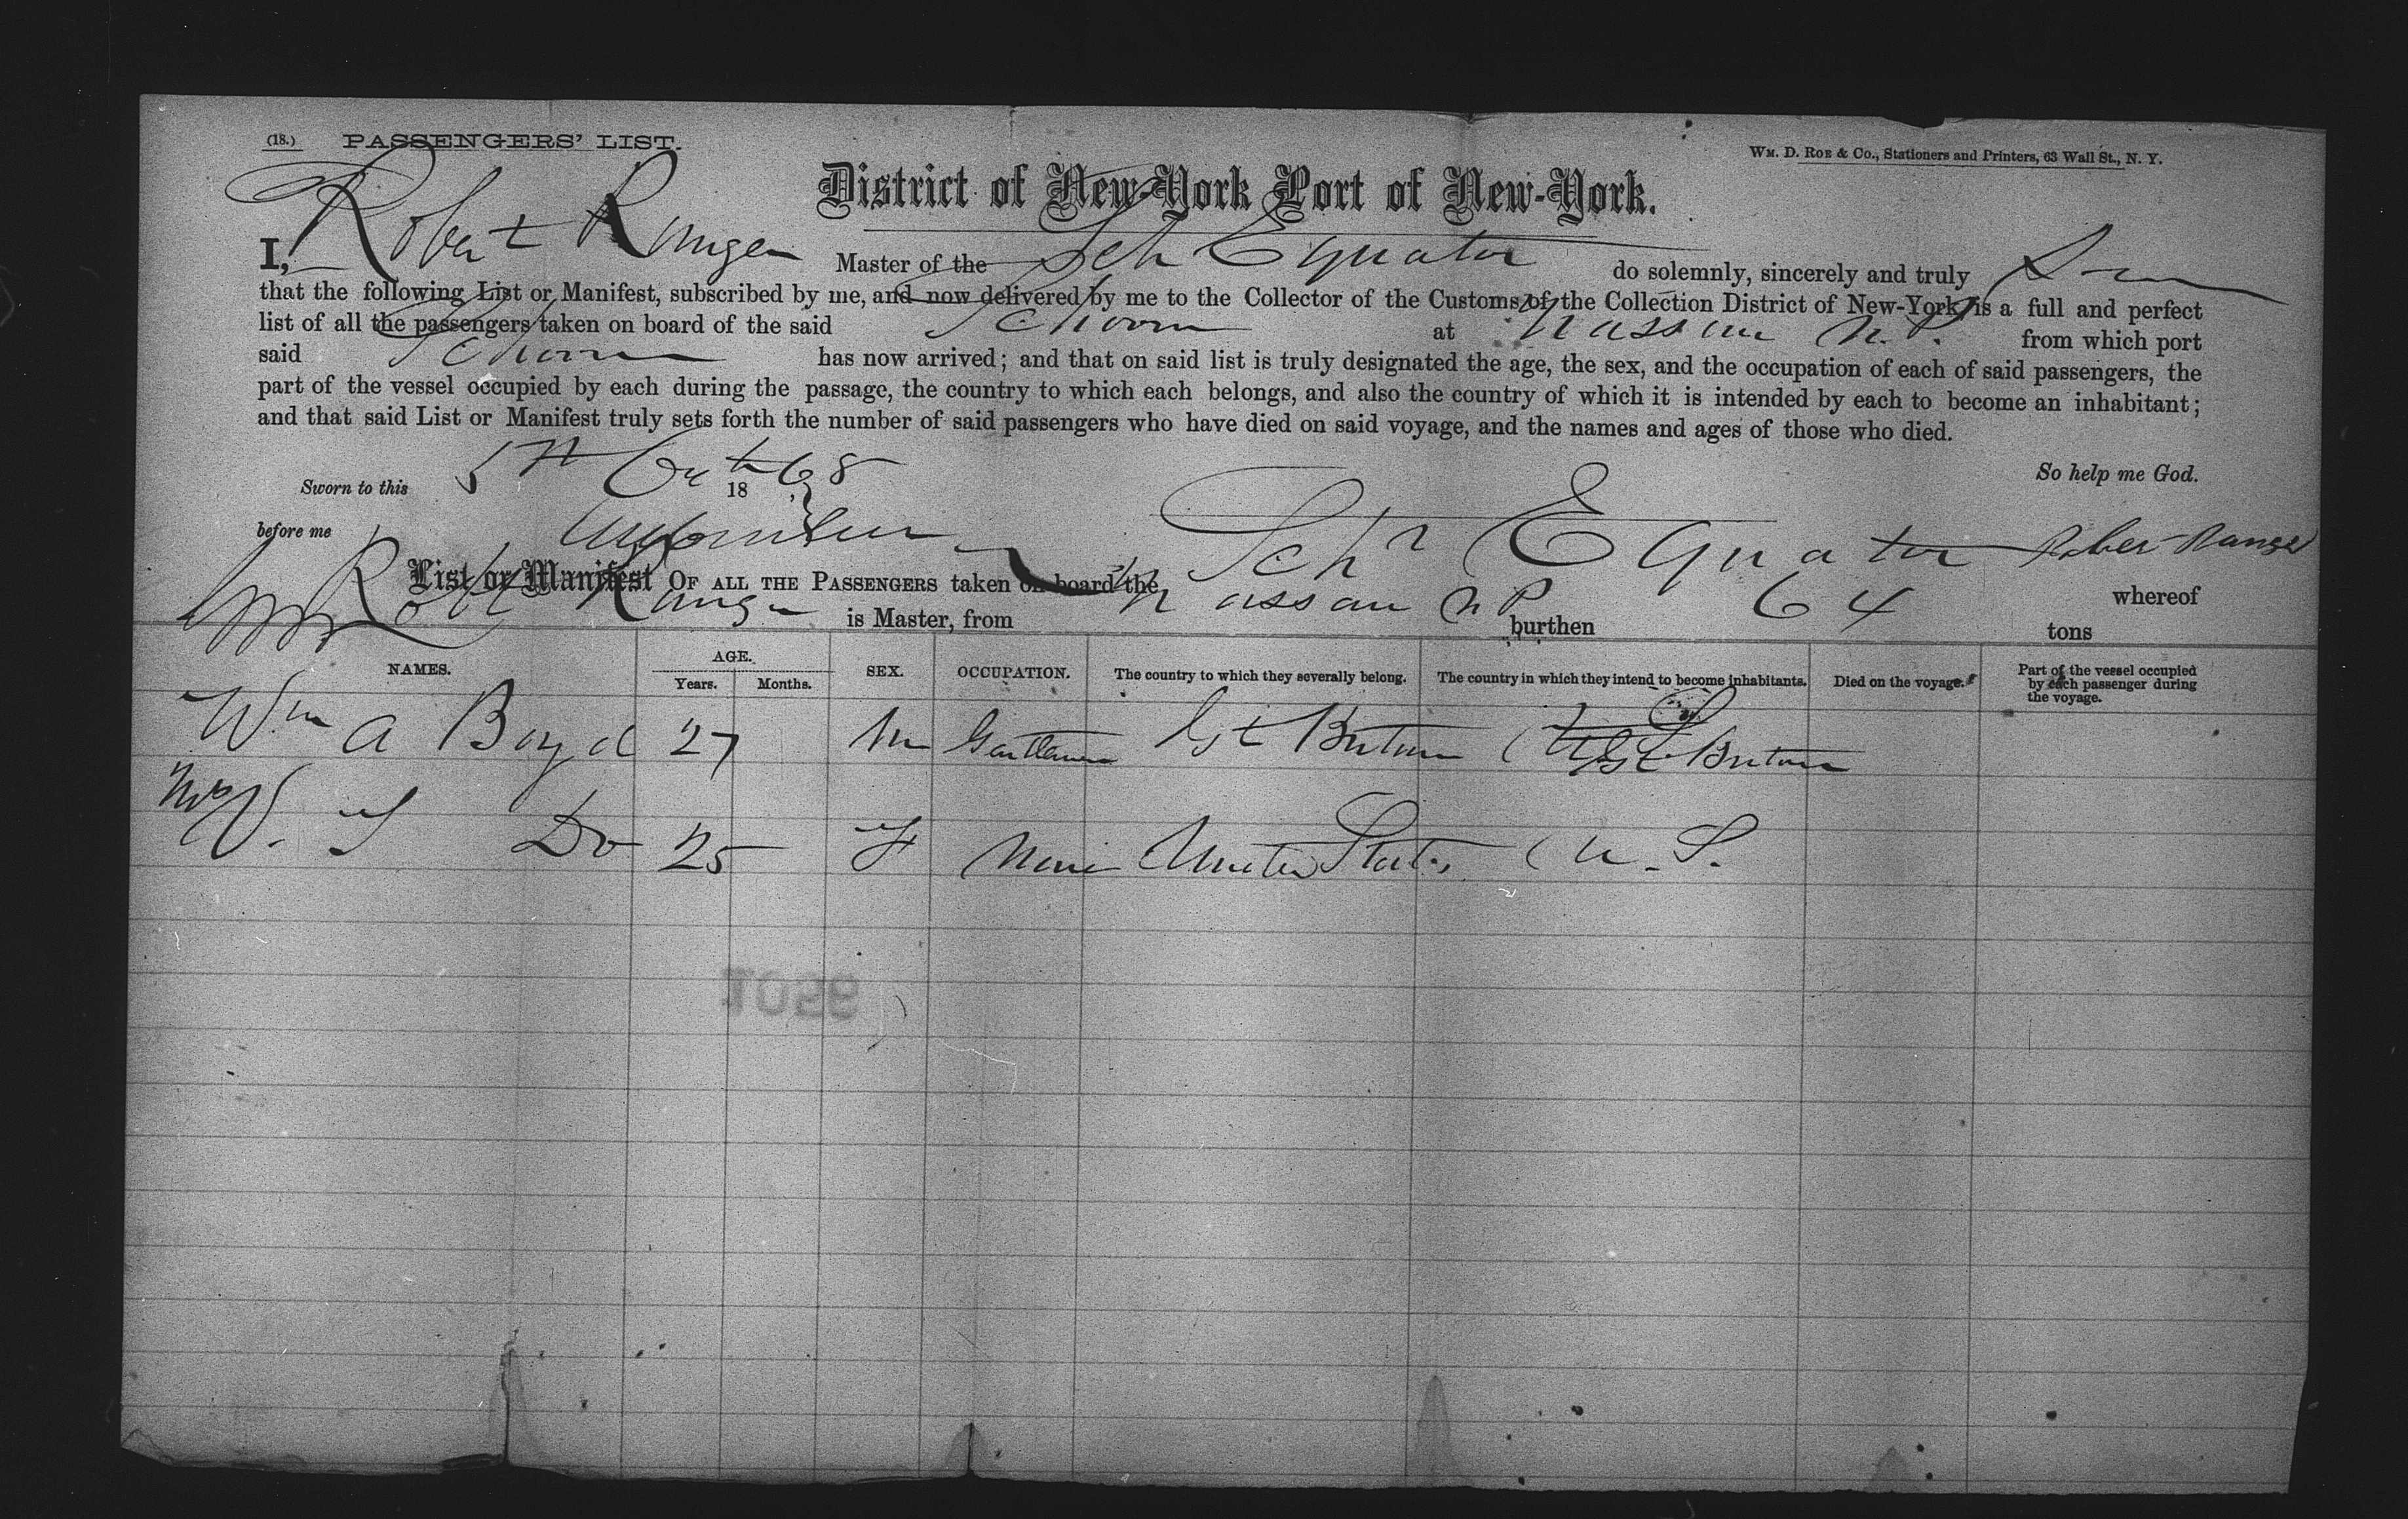 (18.) PASSENGERS' LIST.
WM. D. ROE & Co., Stationers and Printers, 63 Wall St., N. Y.
District of New-York Port of New-York.
I, Robert Ranger Master of the Sch Equator do solemnly, sincerely and truly
that the following List or Manifest, subscribed by me, and now delivered by me to the Collector of the Customs of the Collection District of New-York, is a full and perfect
list of all the passengers taken on board of the said Schoon at Nassau N.P. from which port
said Schoon has now arrived; and that on said list is truly designated the age, the sex, and the occupation of each of said passengers, the
part of the vessel occupied by each during the passage, the country to which each belongs, and also the country of which it is intended by each to become an inhabitant;
and that said List or Manifest truly sets forth the number of said passengers who have died on said voyage, and the names and ages of those who died.
So help me God.
Sworn to this 5th Oct 1868
before me
List or Manifest OF ALL THE PASSENGERS taken on board the Schr Equator whereof
Robt Ranger is Master, from Nassau N P burthen 64 tons
NAMES. AGE. Years. Months. SEX. OCCUPATION. The country to which they severally belong. The country in which they intend to become inhabitants. Died on the voyage. Part of the vessel occupied by each passenger during the voyage.
Wm A Boyd 27 M Gentleman Gt Britain Gt Britain
Mrs V. S Do 25 F None United States U. S.